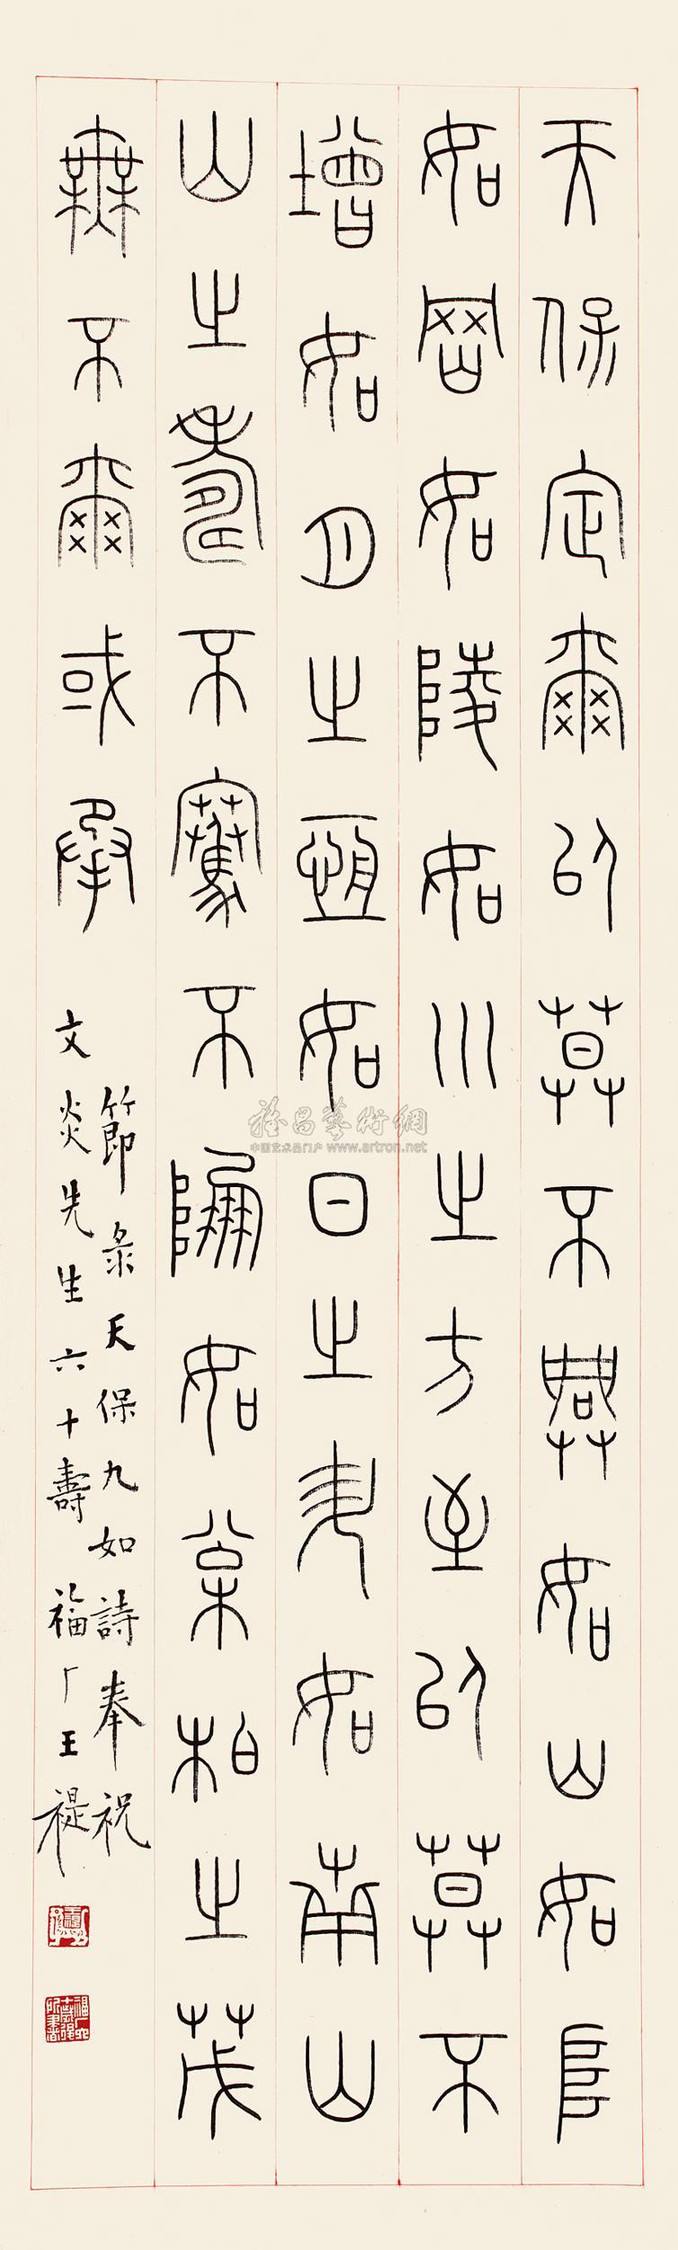 天保定爾以莫不興如山如阜
如岡如陵如川之方至以莫不
增如月之恆如日之升如南山
山之壽不騫不崩如松柏之茂
無不爾或承
節彔天保九如詩奉祝
文炎先生六十壽 福厂王禔
雅昌藝術網
中国艺术品门户 www.artron.net